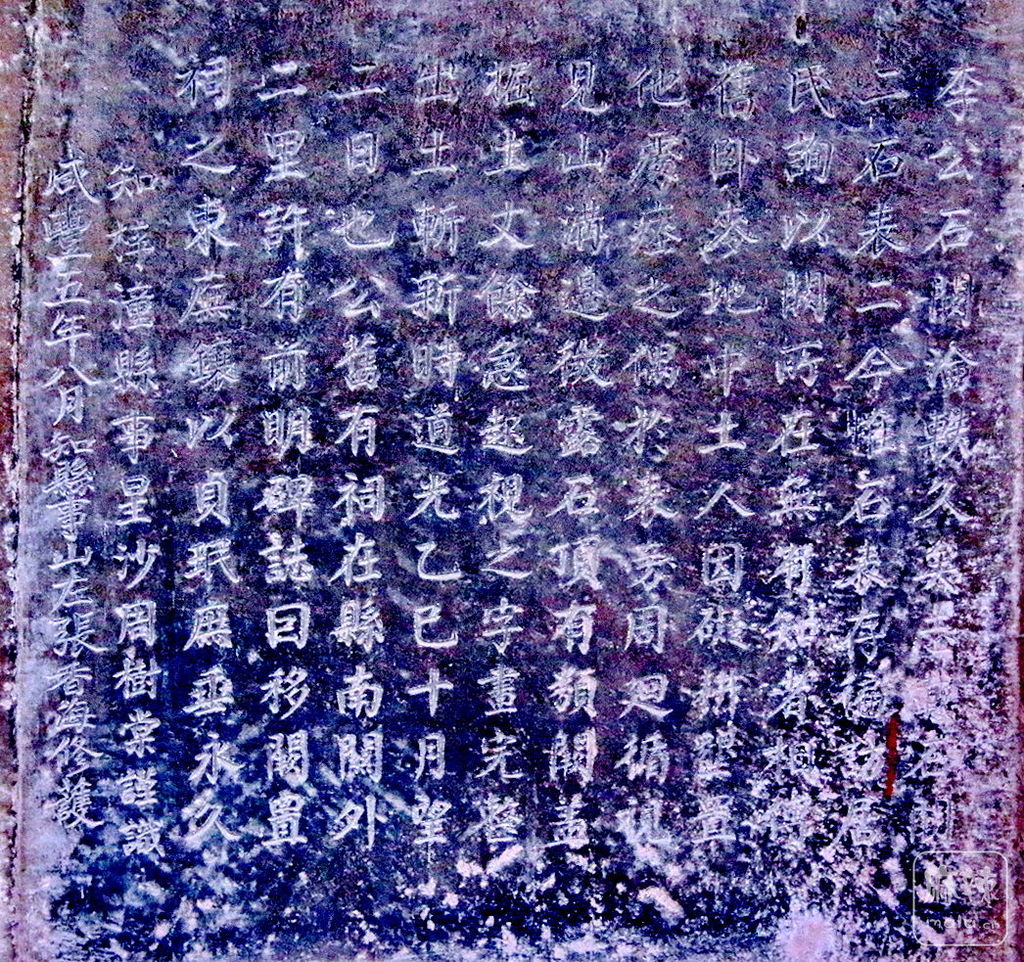 李公石闕淪軼久矣石闕
二石表二今惟石表存徧訪居
氏詢以闕所在無有知者相傳
舊卧麥地中土人因礙耕墾置
化為痊之偶於表旁周廻循視
見山溝邊微露石頂有類闕盖
掘土丈餘急起視之字畫完整
出土斬新時道光乙巳十月望
二日也公舊有祠在縣南關外
二里許有前明碑誌曰移闕置
祠之東廡鑲以貞珉庶垂永久
知梓潼縣事星沙周樹棠謹識
咸豐五年八月知縣事山左張香海修護